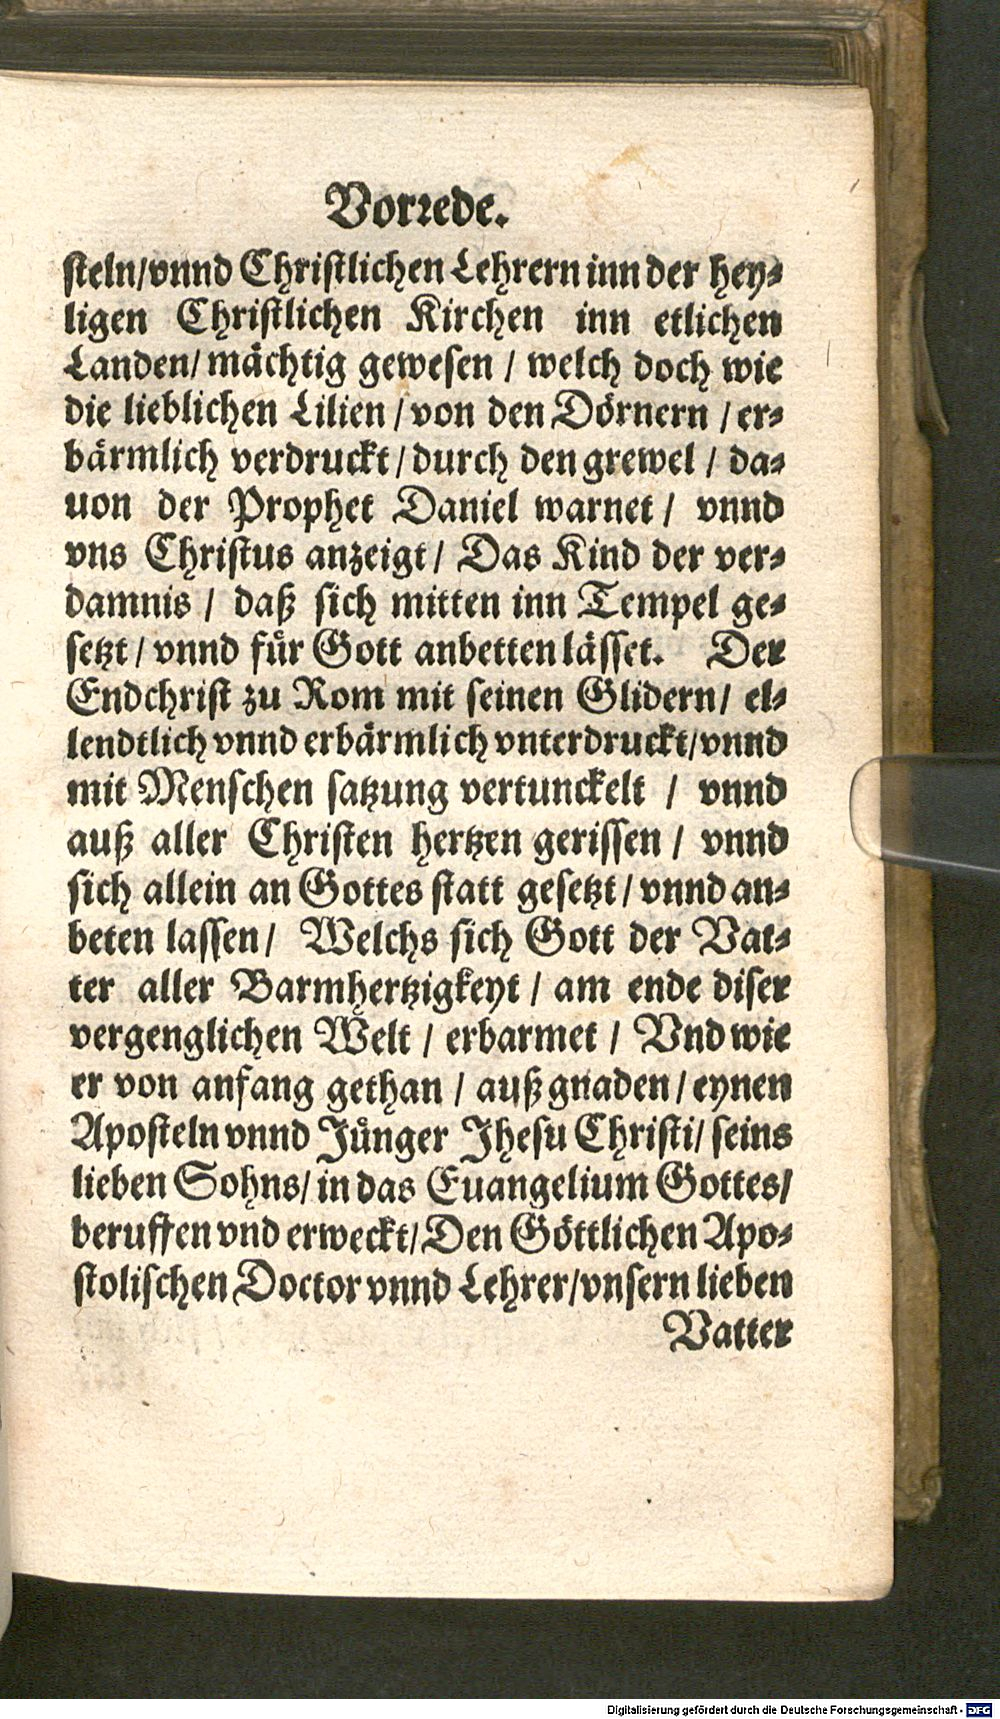 Vorrede.
steln/vnnd Christlichen Lehrern inn der hey⸗
ligen Christlichen Kirchen inn etlichen
Landen/ mächtig gewesen / welch doch wie
die lieblichen Lilien / von den Dörnern / er⸗
bärmlich verdruckt / durch den grewel / da⸗
uon der Prophet Daniel warnet / vnnd
vns Christus anzeigt / Das Kind der ver⸗
damnis / daß sich mitten inn Tempel ge⸗
setzt / vnnd fůr Gott anbetten lässet. Der
Endchrist zu Rom mit seinen Glidern / el⸗
lendtlich vnnd erbärmlich vnterdruckt/vnnd
mit Menschen satzung vertunckelt / vnnd
auß aller Christen hertzen gerissen / vnnd
sich allein an Gottes statt gesetzt / vnnd an⸗
beten lassen / Welchs sich Gott der Vat⸗
ter aller Barmhertzigkeyt / am ende diser
vergenglichen Welt / erbarmet / Vnd wie
er von anfang gethan / auß gnaden / eynen
Aposteln vnnd Jůnger Jhesu Christi/ seins
lieben Sohns/ in das Euangelium Gottes/
beruffen vnd erweckt/ Den Göttlichen Apo⸗
stolischen Doctor vnnd Lehrer/vnsern lieben
Vatter
Digitalisierung gefördert durch die Deutsche Forschungsgemeinschaft - DFG